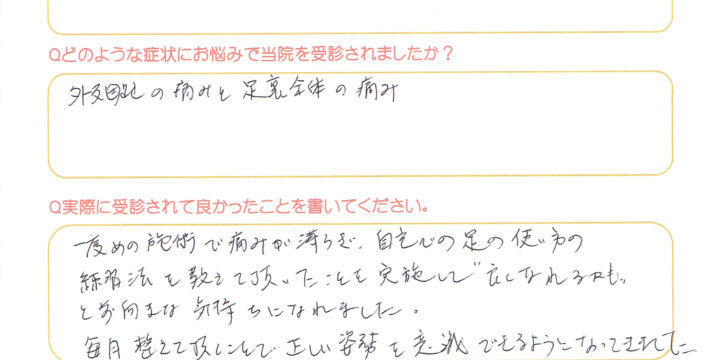 Qどのような症状にお悩みで当院を受診されましたか？
外反母趾の痛みと足裏全体の痛み
Q実際に受診されて良かったことを書いてください。
一度めの施術で痛みが薄らぎ、自宅での足の使い方の
練習法を教えて頂いたことを実施して"良くなれるかも"
と前向きな気持ちになれました。
毎月整えて頂くことで正しい姿勢を意識できるようになってきました